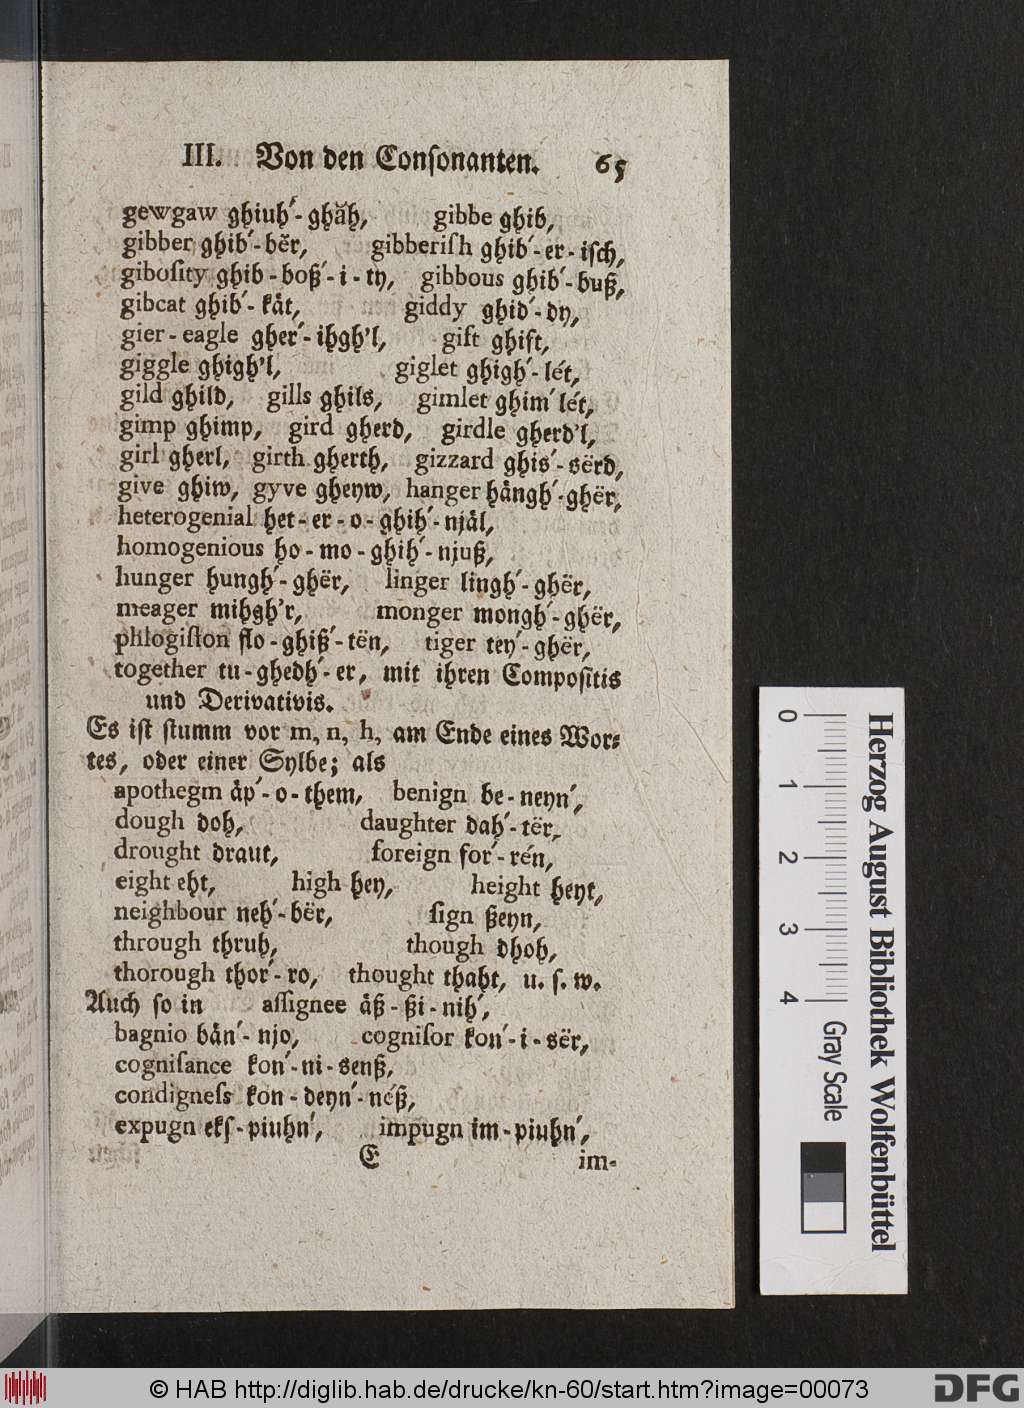 III. Von den Conſonanten. 65
gewgaw ghiuh´-ghăh, gibbe ghib,
gibber ghib´-bĕr, gibberiſh ghib´-er-iſch,
giboſity ghib-boß´-i-ty, gibbous ghib´-buß,
gibcat ghib´-kåt, giddy ghid´-dy,
gier-eagle gher´-ihgh'l, gift ghift,
giggle ghigh'l, giglet ghigh´-lét,
gild ghild, gills ghils, gimlet ghim´lét,
gimp ghimp, gird gherd, girdle gherd'l,
girl gherl, girth gherth, gizzard ghis´-sërd,
give ghiw, gyve gheyw, hanger hångh´-ghër,
heterogenial het-er-o-ghih´-njål,
homogenious ho-mo-ghih´-njuß,
hunger hungh´-ghër, linger lingh´-ghër,
meager mihgh'r, monger mongh´-ghër,
phlogiſton flo-ghiß´-tën, tiger tey´-ghër,
together tu-ghedh´-er, mit ihren Compoſitis
und Derivativis.
Es iſt ſtumm vor m, n, h, am Ende eines Wor⸗
tes, oder einer Sylbe; als
apothegm åp´-o-them, benign be-neyn´,
dough doh, daughter dah´-tër,
drought draut, foreign for´-rén,
eight eht, high hey, height heyt,
neighbour neh´-bër, ſign ßeyn,
through thruh, though dhoh,
thorough thor´-ro, thought thaht, u. ſ. w.
Auch ſo in aſſignee åß-ßi-nih´,
bagnio bån´-njo, cogniſor kon´-i-sër,
cogniſance kon´-ni-senß,
condigneſs kon-deyn´-néß,
expugn ekſ-piuhn´, impugn im-piuhn´,
E im-
0 1 2 3 4
Gray Scale
Herzog August Bibliothek Wolfenbüttel
© HAB http://diglib.hab.de/drucke/kn-60/start.htm?image=00073
DFG